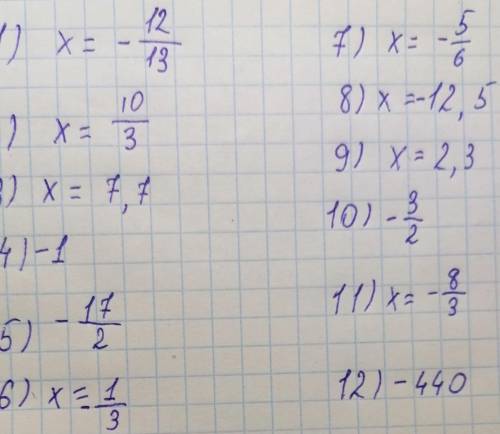 1) x = -12/13
) x = 10/3
3) x = 7,7
4) -1
5) -17/2
6) x = -1/3
7) x = -5/6
8) x = -12,5
9) x = 2,3
10) -3/2
11) x = -8/3
12) -440